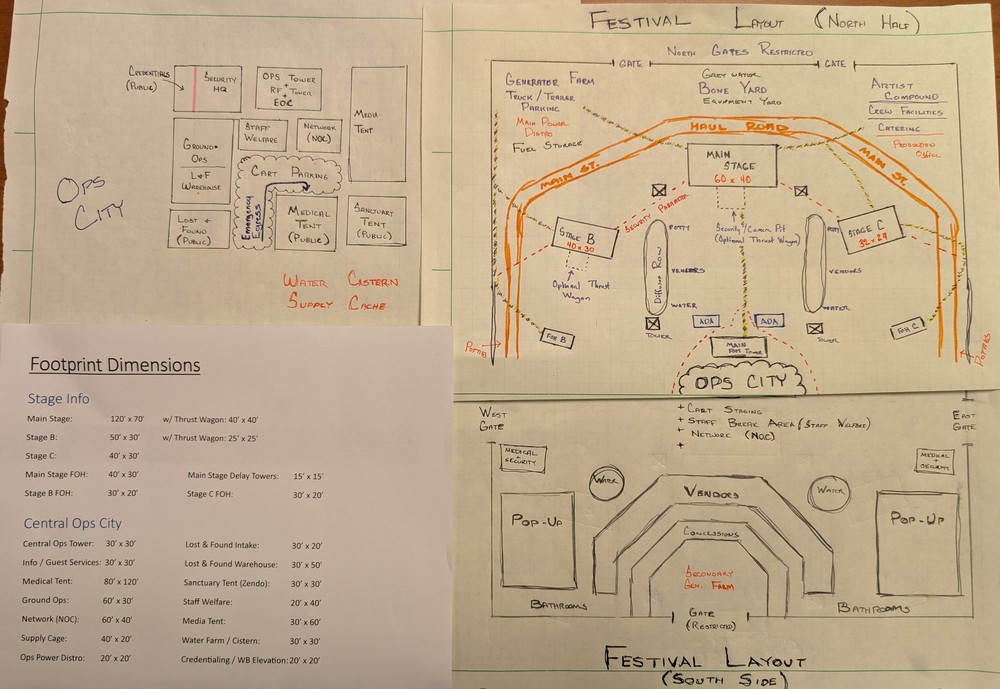 CREDENTIALS
(PUBLIC)
SECURITY
HQ
OPS TOWER
RF + TOWER
+
EOC
MEDIA
TENT
STAFF
WELFARE
NETWORK
(NOC)
GROUND
OPS
L&F
WAREHOUSE
CART PARKING
EMERGENCY
EGRESS
LOST +
FOUND
(PUBLIC)
MEDICAL
TENT
(PUBLIC)
SANCTUARY
TENT
(PUBLIC)
OPS
CITY
WATER CISTERN
SUPPLY CACHE
FESTIVAL LAYOUT (NORTH HALF)
NORTH GATES RESTRICTED
GATE
GATE
GENERATOR FARM
TRUCK / TRAILER
PARKING
MAIN POWER
DISTRO
FUEL STORAGE
GREY WATER
BONE YARD
EQUIPMENT YARD
ARTIST
COMPOUND
CREW FACILITIES
CATERING
PRODUCTION
OFFICE
HAUL ROAD
MAIN ST.
MAIN ST.
MAIN
STAGE
60 x 40
SECURITY PERIMETER
STAGE B
40 x 30
STAGE C
32 x 24
Security/Camera Pit
(Optional Thrust Wagon)
Optional Thrust
Wagon
POTTY
Diffusion Row
VENDERS
WATER
POTTY
VENDORS
WATER
TOWER
TOWER
ADA
ADA
FOH B
FOH C
MAIN
FOH TOWER
POTTIES
POTTIES
OPS CITY
+ CART STAGING
+ STAFF BREAK AREA (STAFF WELFARE)
+ NETWORK (NOC)
+
WEST
GATE
EAST
GATE
MEDICAL
+
SECURITY
MEDICAL
+
SECURITY
WATER
WATER
VENDORS
POP-UP
POP-UP
CONCESSIONS
SECONDARY
GEN. FARM
BATHROOMS
BATHROOMS
GATE
(RESTRICTED)
FESTIVAL LAYOUT
(SOUTH SIDE)
Footprint Dimensions
Stage Info
Main Stage: 120' x 70' w/ Thrust Wagon: 40' x 40'
Stage B: 50' x 30' w/ Thrust Wagon: 25' x 25'
Stage C: 40' x 30'
Main Stage FOH: 40' x 30' Main Stage Delay Towers: 15' x 15'
Stage B FOH: 30' x 20' Stage C FOH: 30' x 20'
Central Ops City
Central Ops Tower: 30' x 30' Lost & Found Intake: 30' x 20'
Info / Guest Services: 30' x 30' Lost & Found Warehouse: 30' x 50'
Medical Tent: 80' x 120' Sanctuary Tent (Zendo): 30' x 30'
Ground Ops: 60' x 30' Staff Welfare: 20' x 40'
Network (NOC): 60' x 40' Media Tent: 30' x 60'
Supply Cage: 40' x 20' Water Farm / Cistern: 30' x 30'
Ops Power Distro: 20' x 20' Credentialing / WB Elevation: 20' x 20'